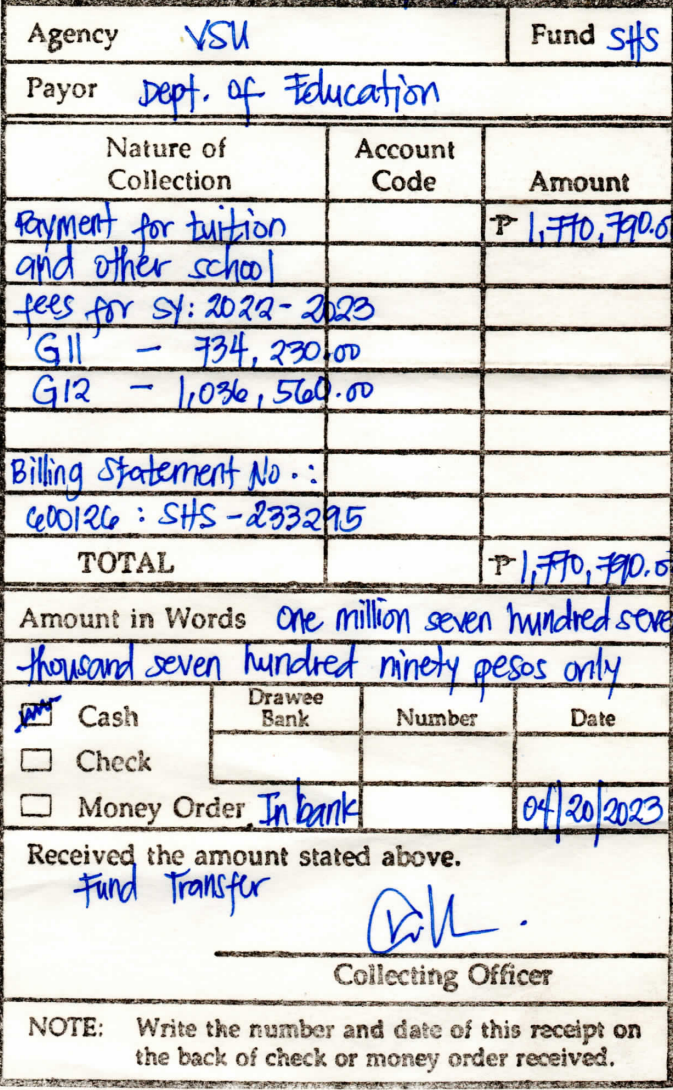 Agency VSU Fund SHS
Payor Dept. of Education
Nature of Collection Account Code Amount
Payment for tuition ₱ 1,770,790.0
and other school
fees for SY: 2022-2023
G11 - 734,230.00
G12 - 1,036,560.00
Billing Statement No.:
600126 : SHS-233295
TOTAL ₱ 1,770,790.0
Amount in Words One million seven hundred seve
thousand seven hundred ninety pesos only
Drawee Bank Number Date
Cash
Check
Money Order In bank 04/20/2023
Received the amount stated above.
Fund Transfer
Collecting Officer
NOTE: Write the number and date of this receipt on
the back of check or money order received.